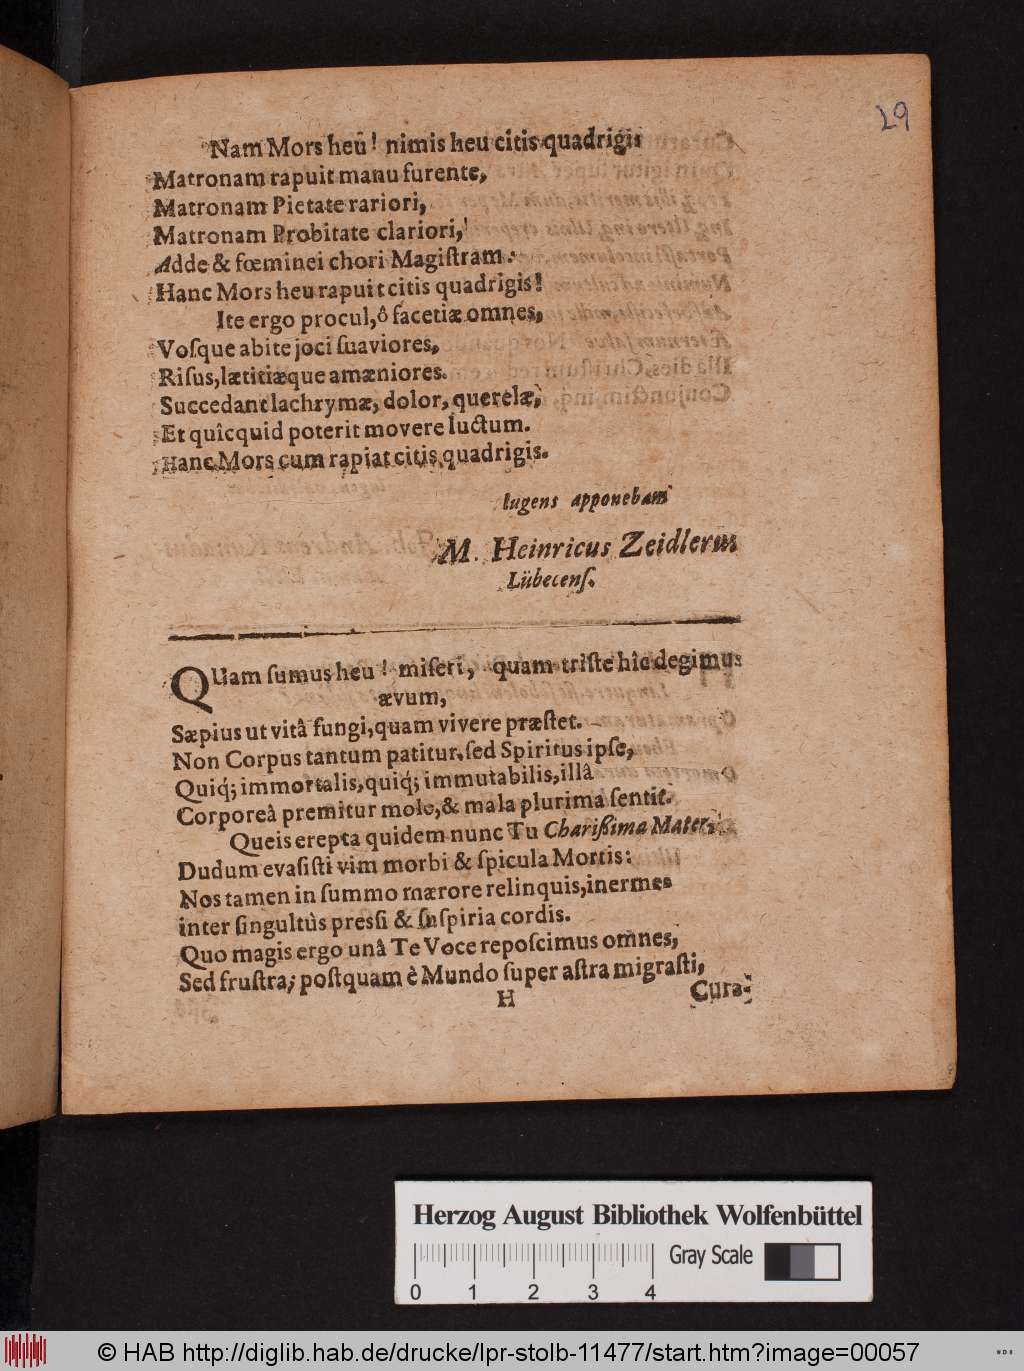 29
Nam Mors heu! nimis heu citis quadrigis
Matronam rapuit manu furente,
Matronam Pietate rariori,
Matronam Probitate clariori,
Adde & fœminei chori Magiſtram.
Hanc Mors heu rapuit citis quadrigis!
Ite ergo procul, ô facetiæ omnes,
Voſque abite joci ſuaviores,
Riſus, lætitiæque amæniores.
Succedant lachrymæ, dolor, querelæ,
Et quicquid poterit movere luctum.
Hanc Mors cum rapiat citis quadrigis.
lugens apponebam
M. Heinricus Zeidlerus
Lübecenſ.
QUam ſumus heu! miſeri, quam triſte hîc degimus
ævum,
Sæpius ut vitâ fungi, quam vivere præſtet.
Non Corpus tantum patitur, ſed Spiritus ipſe,
Quiq́; immortalis, quiq́; immutabilis, illâ
Corporeâ premitur mole, & mala plurima ſentit.
Queis erepta quidem nunc Tu Chariſſima Mater,
Dudum evaſiſti vim morbi & ſpicula Mortis:
Nos tamen in ſummo mærore relinquis, inermes
inter ſingultùs preſſi & ſuſpiria cordis.
Quo magis ergo unâ Te Voce repoſcimus omnes,
Sed fruſtra; poſtquam è Mundo ſuper aſtra migraſti,
H Cura-
Herzog August Bibliothek Wolfenbüttel
Gray Scale
0 1 2 3 4
© HAB http://diglib.hab.de/drucke/lpr-stolb-11477/start.htm?image=00057